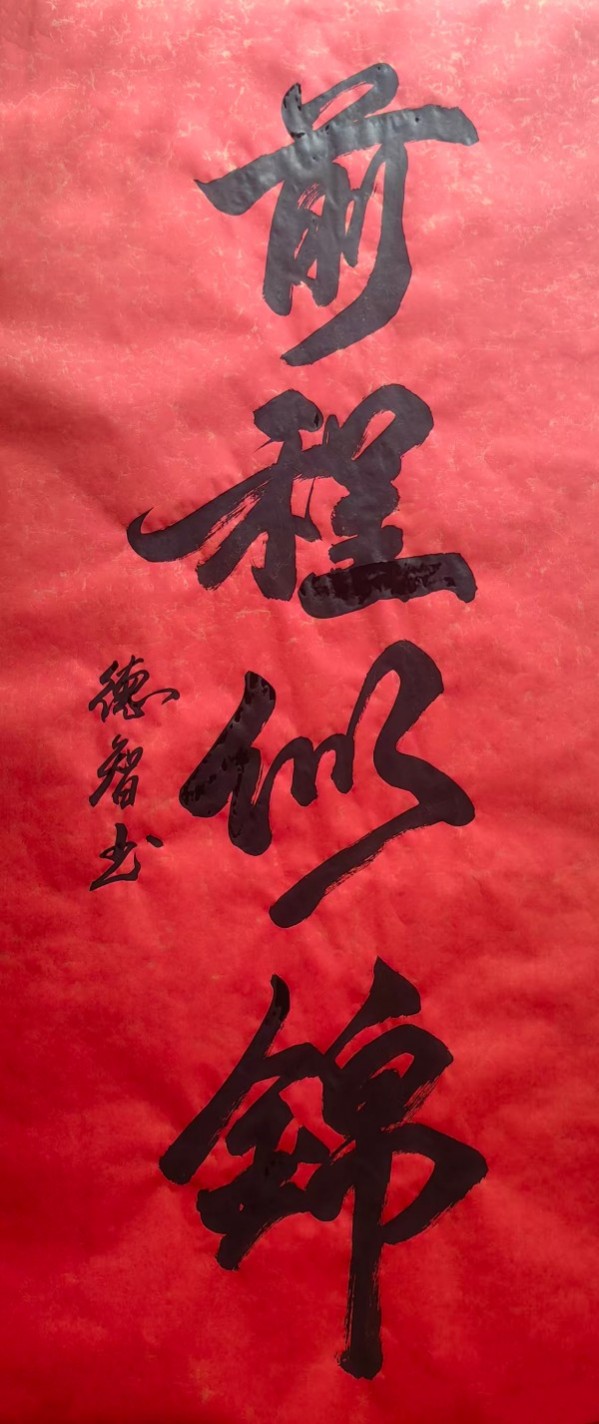 前程似錦
德智书